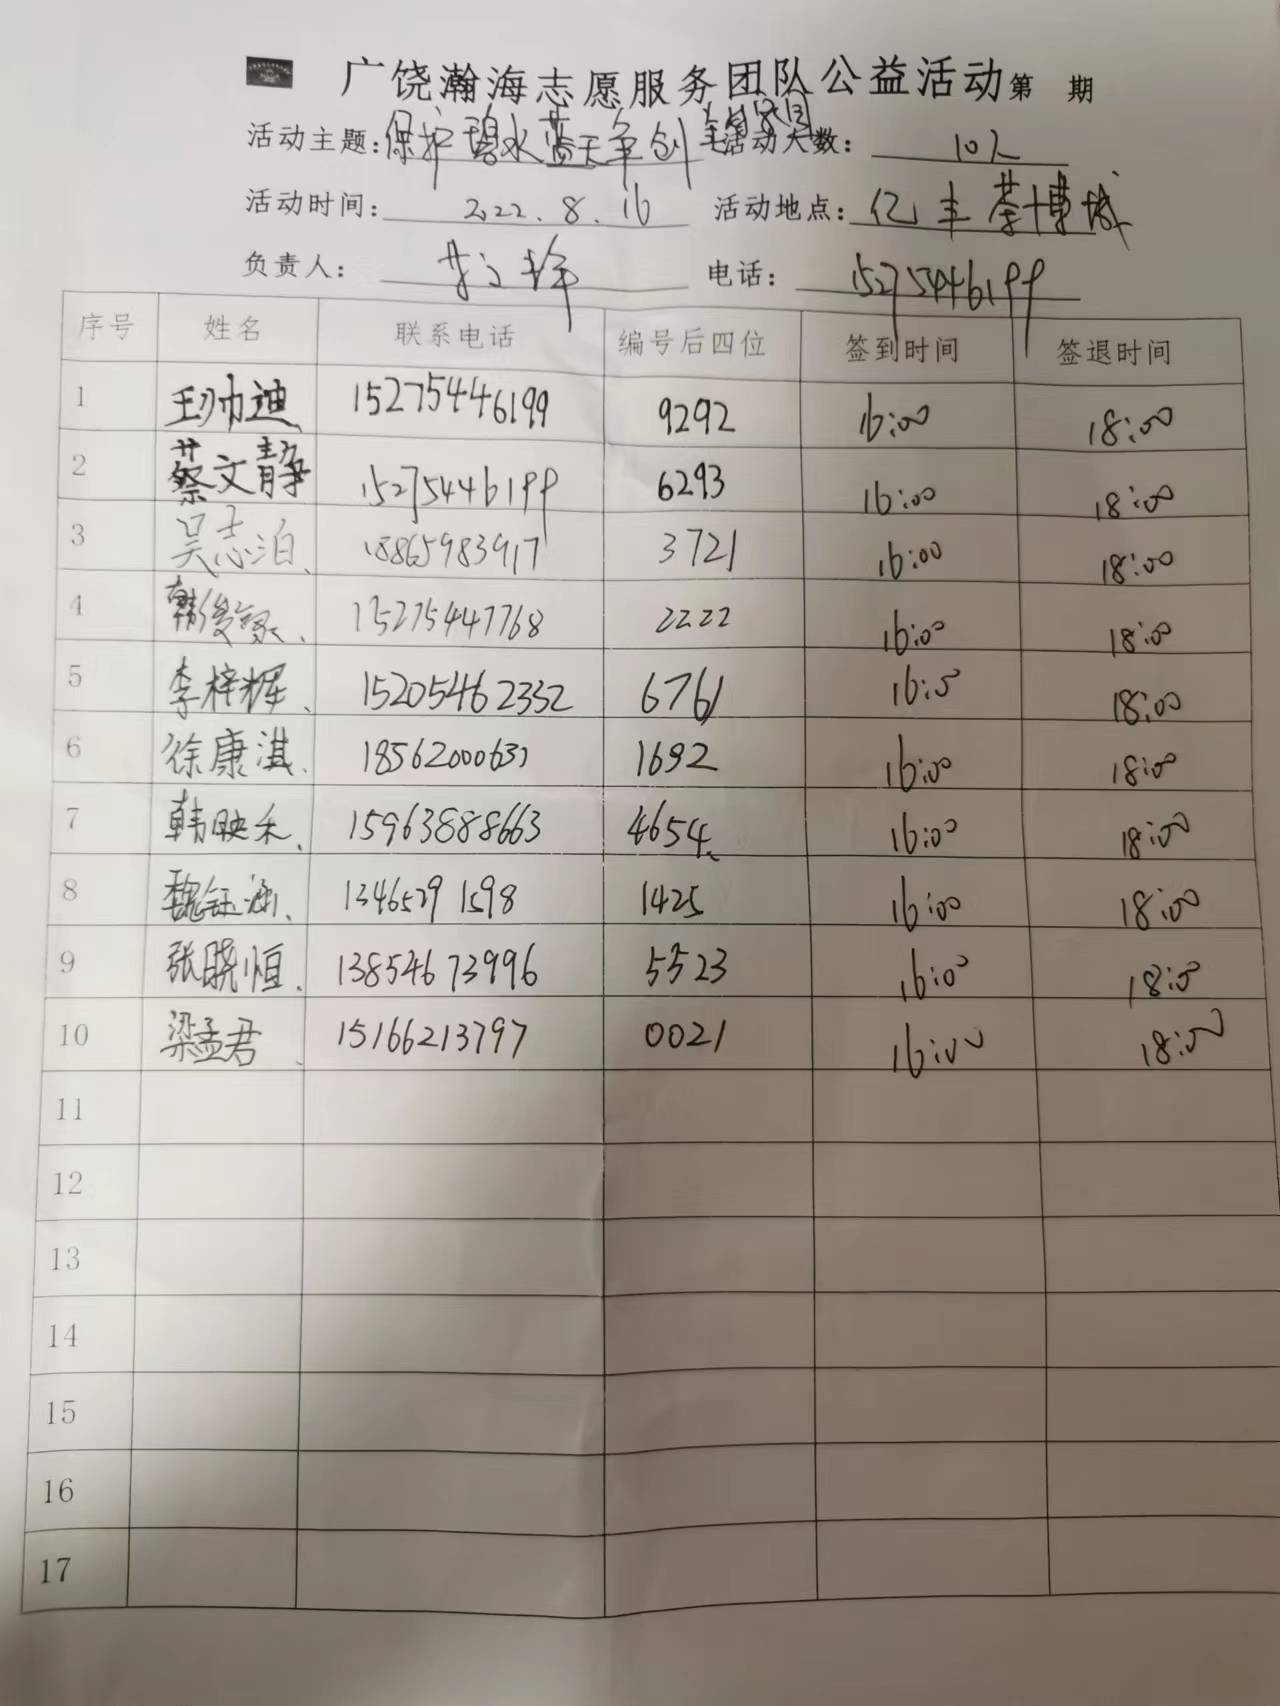 广饶瀚海志愿服务团队公益活动第 期
活动主题:保护碧水蓝天争创 活动人数: 10人
活动时间: 2022.8.16 活动地点: 亿丰茶博城
负责人: 电话: 15275446199
序号 姓名 联系电话 编号后四位 签到时间 签退时间
1 15275446199 9292 16:00 18:00
2 蔡文静 15275446199 6293 16:00 18:00
3 吴志泊 18865983917 3721 16:00 18:00
4 韩俊豪 15275447768 2222 16:00 18:00
5 李梓辉 15205462332 6761 16:00 18:00
6 徐康淇 18562000631 1692 16:00 18:00
7 韩映禾 15963888663 4654 16:00 18:00
8 魏钰涵 13465291598 1425 16:00 18:00
9 张晓恒 13854673996 5523 16:00 18:00
10 梁孟君 15166213797 0021 16:00 18:00
11
12
13
14
15
16
17